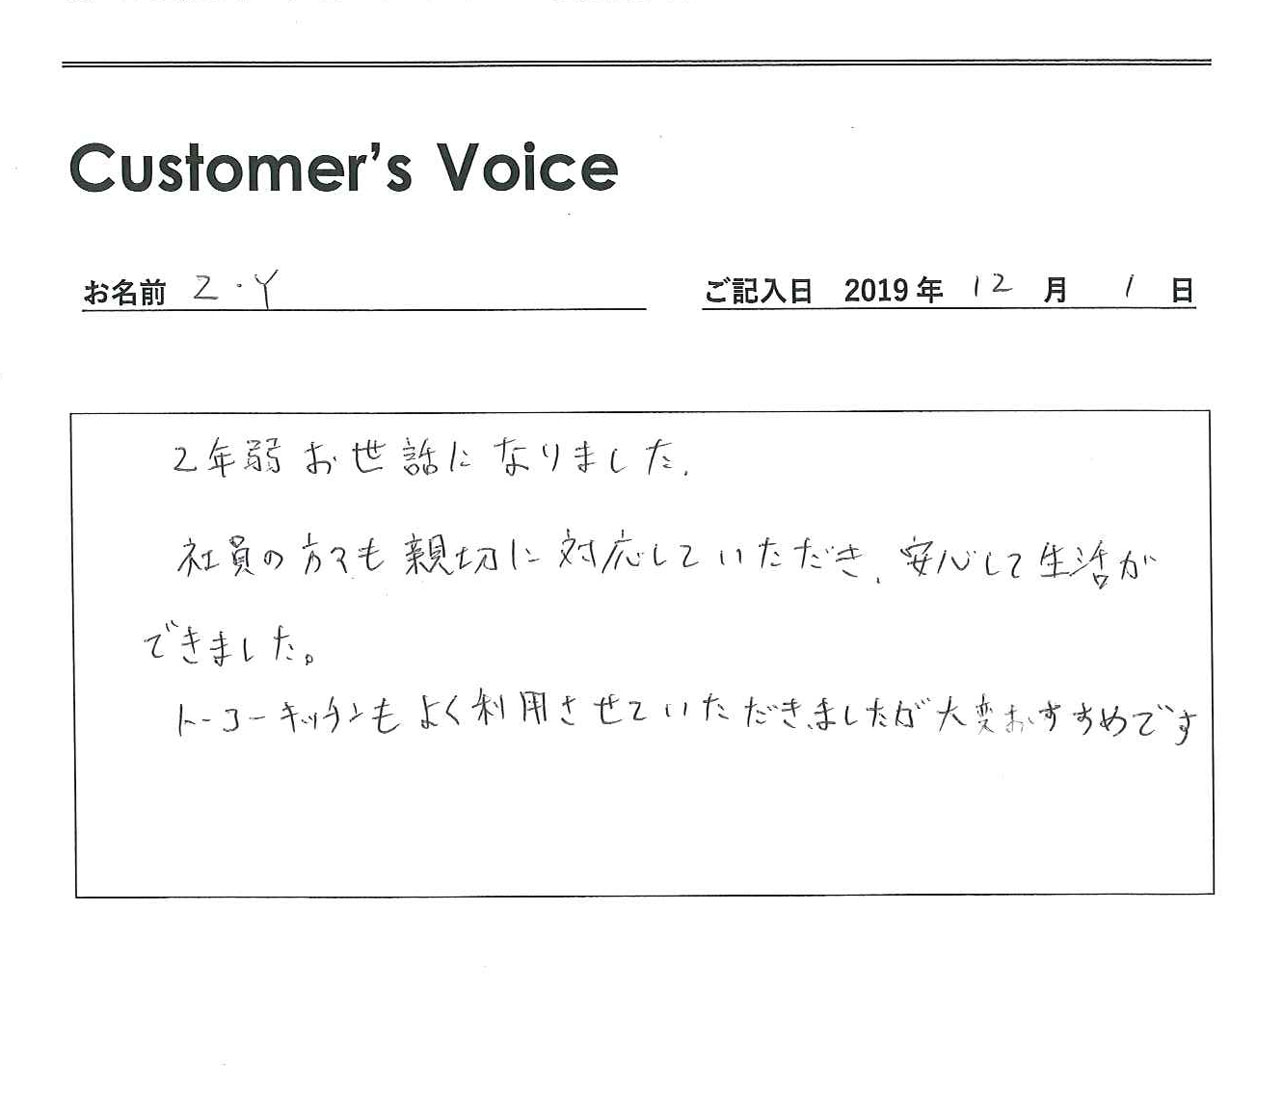 Customer's Voice
お名前 Z・Y
ご記入日 2019年 12月 1日
2年弱お世話になりました.
社員の方々も親切に対応していただき、安心して生活が
できました。
トーコーキッチンもよく利用させていただきましたが大変おすすめです